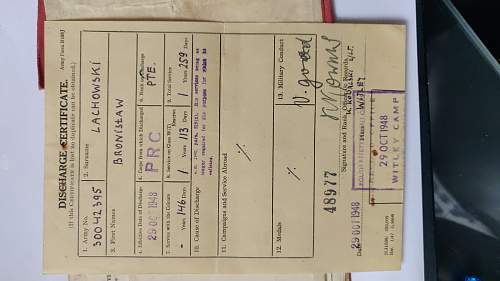 DISCHARGE CERTIFICATE.
(If this Certificate is lost no duplicate can be obtained.)
1. Army No. 30042395
2. Surname LACHOWSKI
3. First Names BRONISŁAW
4. Effective Date of Discharge 29 OCT 1948
5. Corps from which Discharged PRC
6. Rank on Discharge PTE.
7. Service with the Colours - Years 146 Days
8. Service on Class W(T) Reserve 1 Years 113 Days
9. Total Service 1 Years 259 Days
10. Cause of Discharge
11. Campaigns and Service Abroad
12. Medals
13. Military Conduct V. good
48977
Signature and Rank, Officer i/c Records.
Date 29 OCT 1948
Place WITLEY
29 OCT 1948
WITLEY CAMP